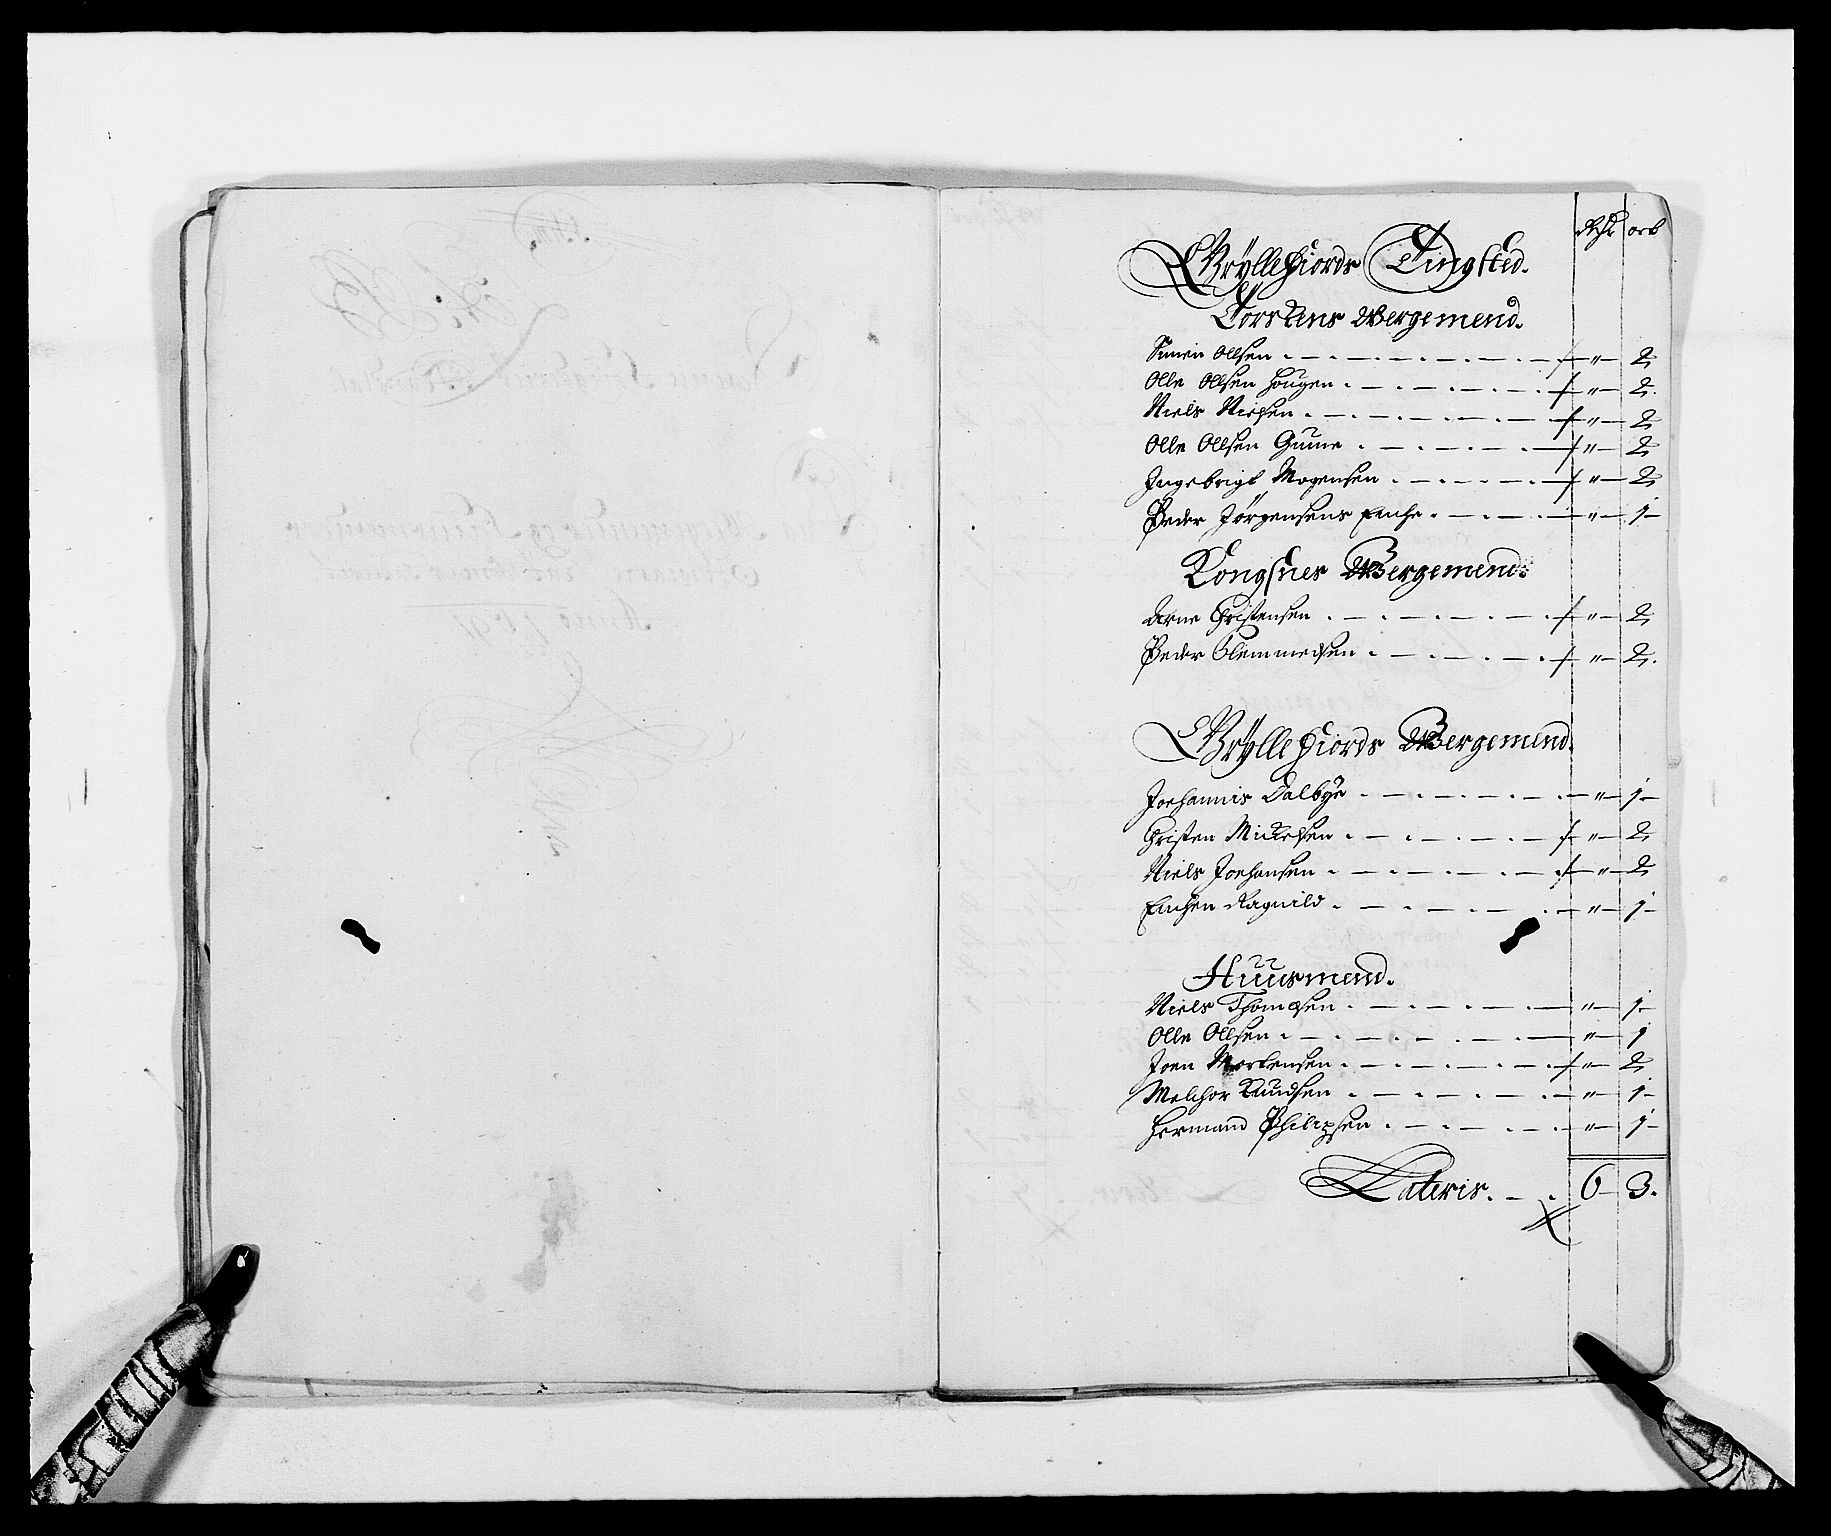 Rdr ort
Gryllefiords Tingsted.
Torskens Bergemend.
Simen Ollsen . — „ — 2
Olle Ollsen Hougen . — „ — 2.
Niels Nielsen . — „ — 2
Olle Ollsen Gume . — „ — 2
Ingebrigt Mogensen . — „ — 2
Peder Jørgensens Enche . — „ — 1 —
Kongsnes Bergemend:
Arne Christensen . — „ — 2
Peder Clemmedsen . — „ — 2.
Gryllefiords Bergemend.
Joehannis Dalbye . — „ — 1 —
Christen Mickelsen . — „ — 2
Niels Joehansen . — „ — 2
Enchen Ragnild . — „ — 1 —
Huusmend.
Niels Thomesen . — „ — 1 —
Olle Ollsen . — „ — 1
Joen Mortensen . — „ — 2
Melchor Knudsen . — „ — 1 —
Hermand Philipsen . — „ — 1 —
Lateris. — . 6 — 3.